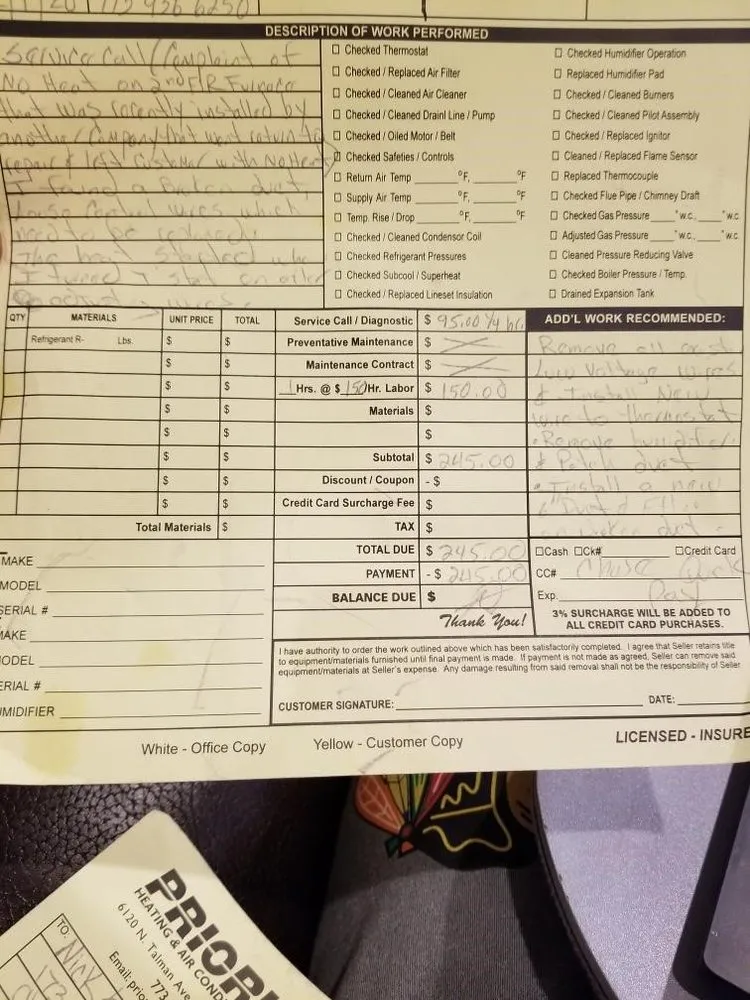 773 936 6250
DESCRIPTION OF WORK PERFORMED
Service Call / Complaint of
No Heat on 2nd FLR Furnace
that was recently installed by
another Company that wont return to
repair & left Customer with No Heat
I found a Broken duct,
loose Control wires which
need to be replaced.
The heat Started when
I tuned T stat on after
wires.
☐ Checked Thermostat
☐ Checked / Replaced Air Filter
☐ Checked / Cleaned Air Cleaner
☐ Checked / Cleaned Drainl Line / Pump
☐ Checked / Oiled Motor / Belt
Checked Safeties / Controls
☐ Return Air Temp ______ °F, ______ °F
☐ Supply Air Temp ______ °F, ______ °F
☐ Temp. Rise / Drop ______ °F, ______ °F
☐ Checked / Cleaned Condensor Coil
☐ Checked Refrigerant Pressures
☐ Checked Subcool / Superheat
☐ Checked / Replaced Lineset Insulation
☐ Checked Humidifier Operation
☐ Replaced Humidifier Pad
☐ Checked / Cleaned Burners
☐ Checked / Cleaned Pilot Assembly
☐ Checked / Replaced Ignitor
☐ Cleaned / Replaced Flame Sensor
☐ Replaced Thermocouple
☐ Checked Flue Pipe / Chimney Draft
☐ Checked Gas Pressure ____ "w.c., ____ "w.c.
☐ Adjusted Gas Pressure ____ "w.c., ____ "w.c.
☐ Cleaned Pressure Reducing Valve
☐ Checked Boiler Pressure / Temp.
☐ Drained Expansion Tank
QTY MATERIALS UNIT PRICE TOTAL
Refrigerant R- Lbs. $ $
$ $
$ $
$ $
$ $
$ $
$ $
$ $
Total Materials $
Service Call / Diagnostic $ 95.00
Preventative Maintenance $
Maintenance Contract $
1 Hrs. @ $ 150 Hr. Labor $ 150.00
Materials $
$
Subtotal $ 245.00
Discount / Coupon - $
Credit Card Surcharge Fee $
TAX $
TOTAL DUE $ 245.00
PAYMENT - $ 245.00
BALANCE DUE $
Thank You!
ADD'L WORK RECOMMENDED:
Remove all
Low Voltage Wires
& Install New
wire to thermostat
• Remove humidifier
& Patch duct
• Install a new
6" Duct
duct.
☐Cash ☐Ck# ______ ☐Credit Card
CC# Chase Quick
Exp. Pay
3% SURCHARGE WILL BE ADDED TO
ALL CREDIT CARD PURCHASES.
MAKE
MODEL
SERIAL #
MAKE
ODEL
ERIAL #
UMIDIFIER
I have authority to order the work outlined above which has been satisfactorily completed. I agree that Seller retains title
to equipment/materials furnished until final payment is made. If payment is not made as agreed, Seller can remove said
equipment/materials at Seller's expense. Any damage resulting from said removal shall not be the responsibility of Seller
CUSTOMER SIGNATURE: DATE:
White - Office Copy Yellow - Customer Copy LICENSED - INSURE
PRIORI
HEATING & AIR COND
6120 N. Talman Ave
773
Email: prio
TO:
Nick